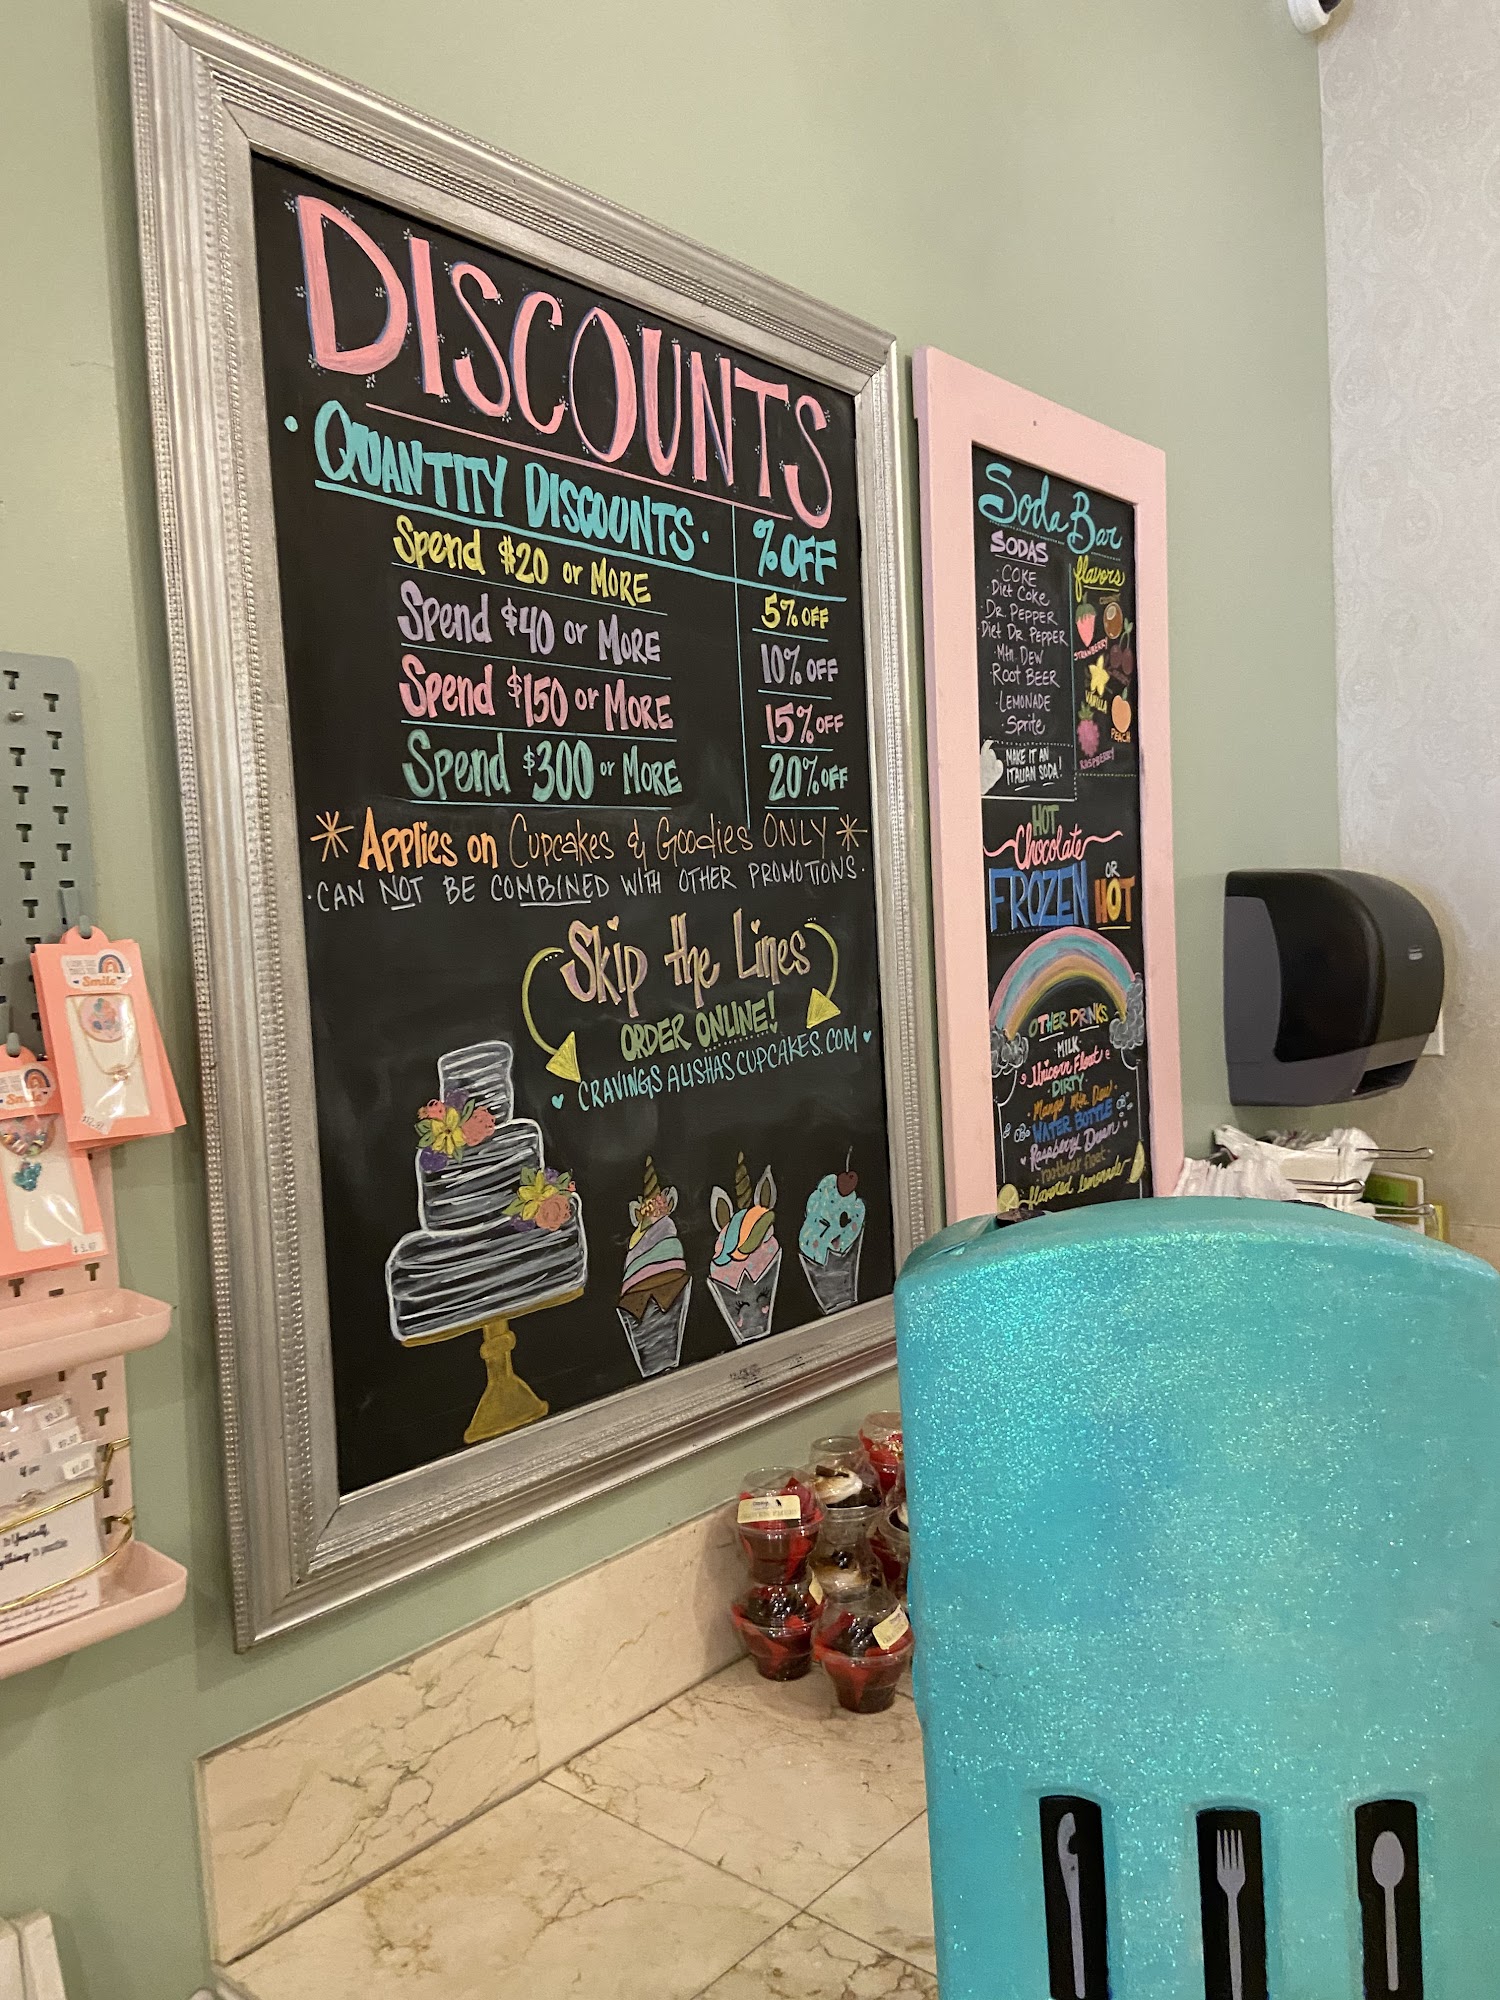 DISCOUNTS
QUANTITY DISCOUNTS
% OFF
Spend $20 or MORE
5% OFF
Spend $40 or MORE
10% OFF
Spend $150 or MORE
15% OFF
Spend $300 or MORE
20% OFF
* Applies on Cupcakes & Goodies ONLY *
· CAN NOT BE COMBINED WITH OTHER PROMOTIONS ·
Skip the Lines
ORDER ONLINE!
CRAVINGSALISHASCUPCAKES.COM
Soda Bar
SODAS
· COKE
· Diet Coke
· Dr. PEPPER
· Diet Dr. PEPPER
· Mtn. Dew
· ROOT BEER
· LEMONADE
· Sprite
MAKE IT AN
ITALIAN SODA!
flavors
COCONUT
STRAWBERRY
VANILLA
PEACH
RASPBERRY
HOT
Chocolate
FROZEN OR HOT
OTHER DRINKS
· MILK ·
Unicorn Float
· DIRTY ·
· Mango Mtn Dew ·
WATER BOTTLE
Raspberry Dream
rootbeer float
flavored lemonade
Smile
Smile